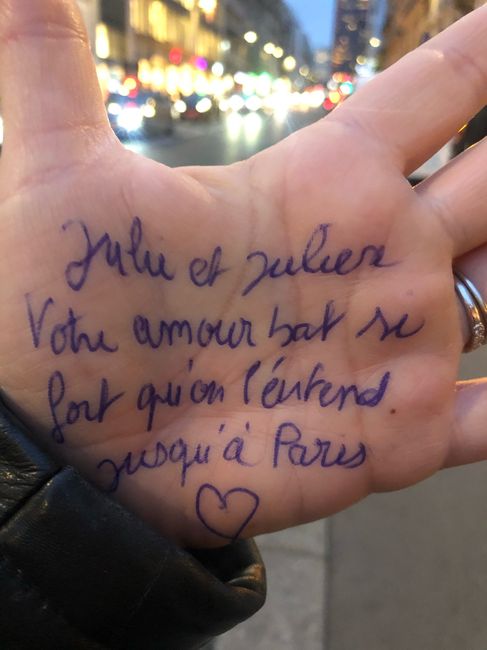 Julie et Julien
Votre amour bat si
fort qu'on l'entend
jusqu'à Paris